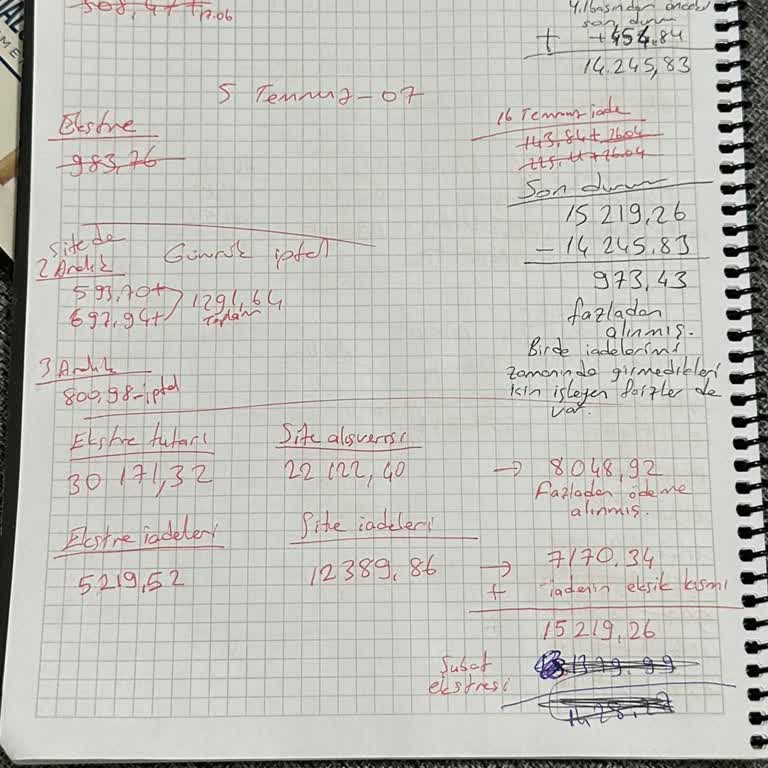 508,47+17.06
Yılbaşından önceki
son durum
+ +454,84
14.245,83
5 Temmuz-07
Ekstre
983,76
16 Temmuz iade
143,84+2604
225.41+2604
Son durum
15 219,26
- 14 245,83
973,43
fazladan
alınmış.
Birde iadelerimi
zamanında girmedikleri
için işleyen faizler de
var.
Sitede
2 Aralık
593,70+
697,94+
1291,64
toplam
iptal
3 Aralık
800,98-iptal
Ekstre tutarı
30 171,32
Site alışverişi
22 122,40
→ 8048,92
Fazladan ödeme
alınmış.
Ekstre iadeleri
5219,52
Site iadeleri
12389,86
→ 7170.34
+ iadenin eksik kısmı
15219,26
Şubat
ekstresi